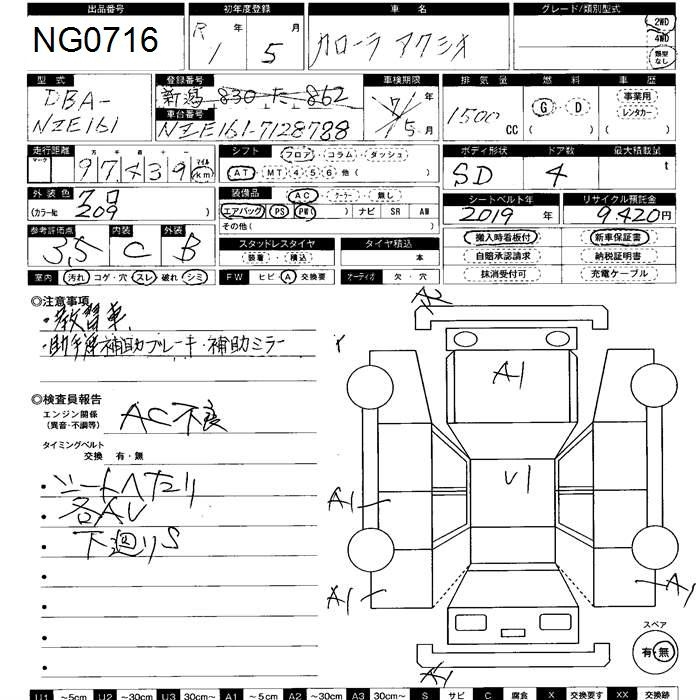 出品番号 初年度登録 車名 グレード/類別型式
NG0716 R1年 5月 カローラ アクシオ 2WD
4WD
類型なし
型式 登録番号 車検期限 排気量 燃料 車歴
DBA-NZE161 新潟 830 た 862 年 1500cc G・D 事業用
( ) レンタカー
車台番号
NZE161-7128788 5月 ( )
走行距離 シフト フロア・コラム・ダッシュ ボディ形状 ドア数 最大積載量
マーク 十万千百十一 マイル km AT・MT(4 5 6 他( ) SD 4 t
外装色 クロ 装備品 AC・クーラー・無し シートベルト年 リサイクル預託金
(カラーNo. 209 ) エアバッグ PS PW( ) ナビ SR AW 2019年 9420円
その他( )
参考評価点 内装 外装 スタッドレスタイヤ タイヤ積込 搬入時看板付 新車保証書
3.5 C B 装着・積込 本 自賠承認請求 納税証明書
室内 汚れ コゲ・穴 スレ 破れ・シミ FW ヒビ・A 交換要 オーディオ 欠・穴 抹消受付可 充電ケーブル
◎注意事項
・教習車
・助手席補助ブレーキ・補助ミラー
◎検査員報告
エンジン関係
(異音・不調等) AC不良
タイミングベルト
交換 有・無
・シートヘたり
・各AU
・下廻りS
A2
A1
U1
A1
A1
A1
A1
スペア
有・無
U1 ~5cm U2 ~30cm U3 30cm~ A1 ~5cm A2 ~30cm A3 30cm~ S サビ C 腐食 X 交換要す XX 交換跡